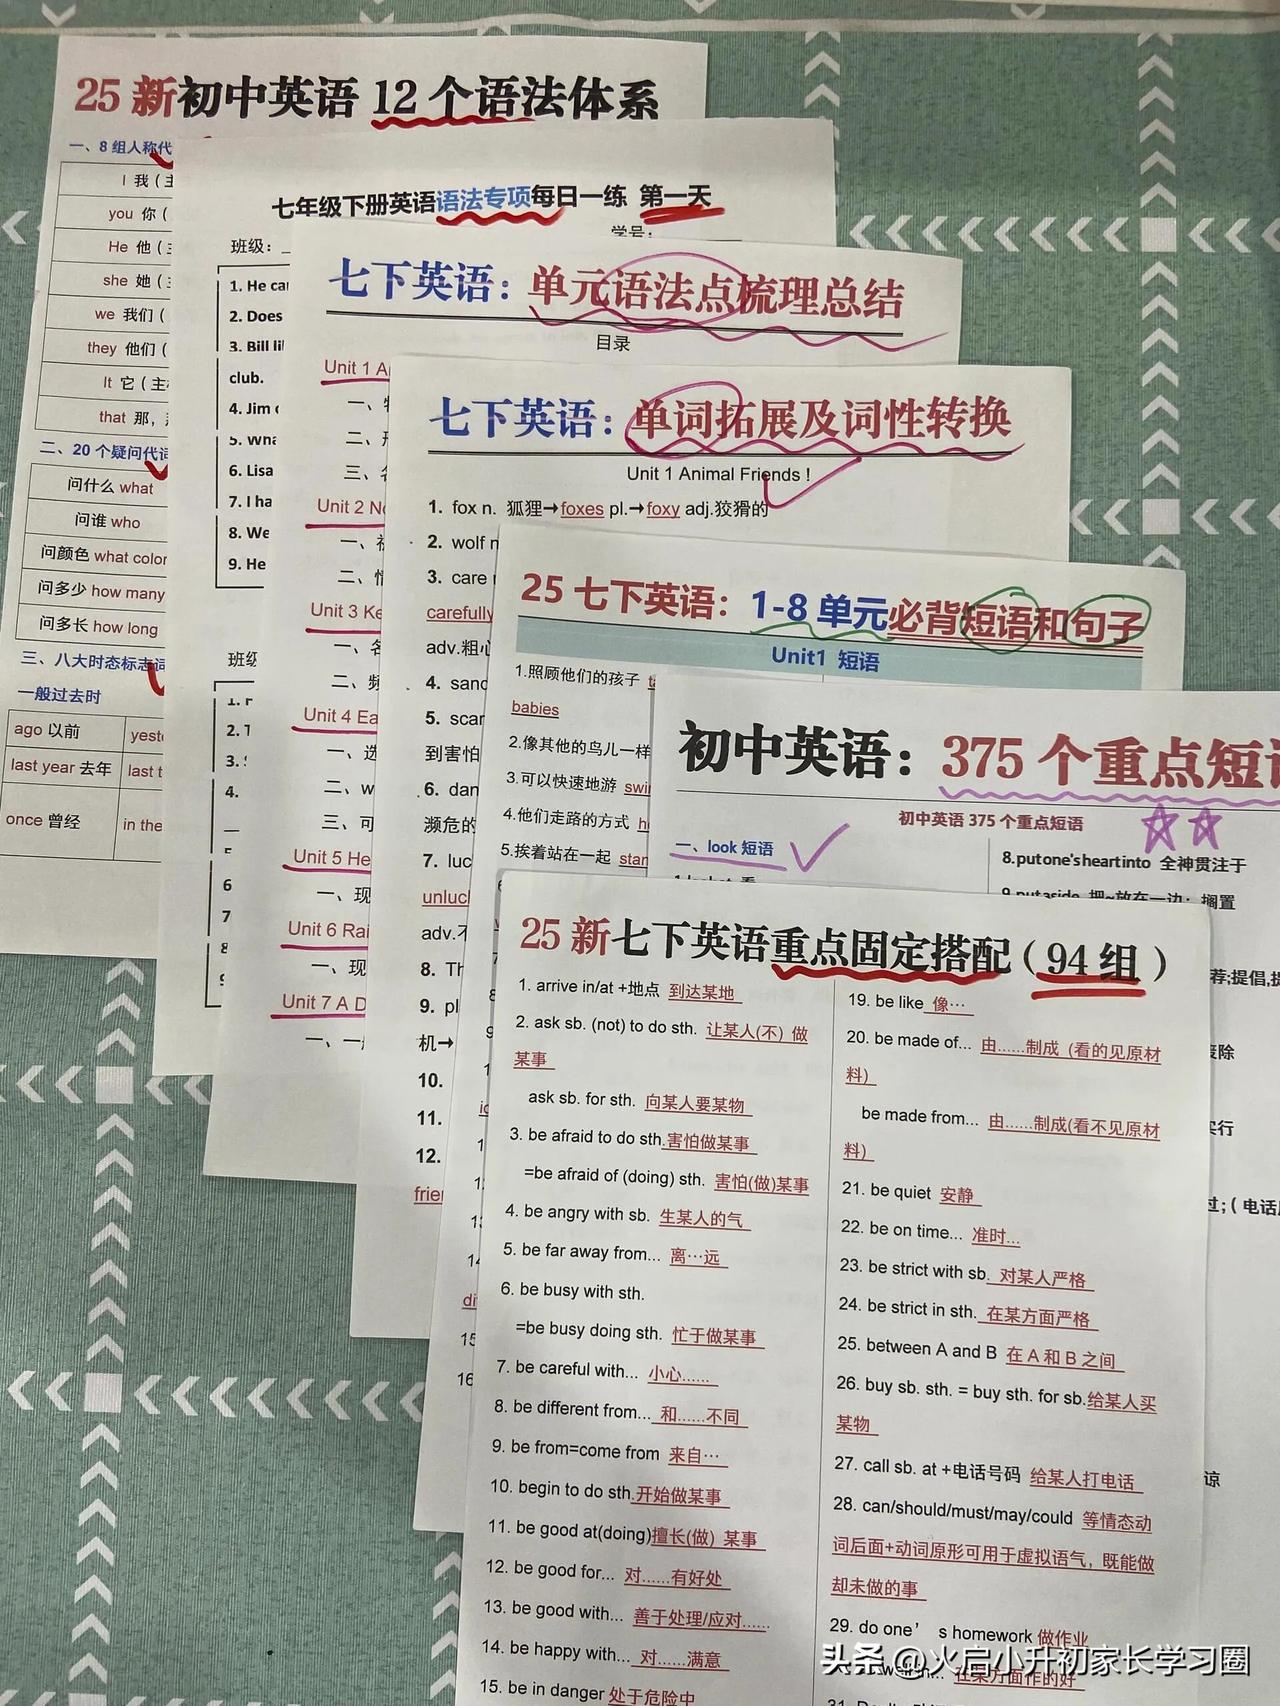 25 新初中英语 12 个语法体系
一、8 组人称代
I 我（主
you 你（
He 他（
she 她（
we 我们（
they 他们（
It 它（主
that 那，
二、20 个疑问代词
问什么 what
问谁 who
问颜色 what color
问多少 how many
问多长 how long
三、八大时态标志词
一般过去时
ago 以前
last year 去年
last t
once 曾经
in the
七年级下册英语语法专项每日一练 第一天
班级：
学号：
1. He ca
2. Does
3. Bill li
club.
4. Jim
5. Wha
6. Lisa
7. I ha
8. We
9. He
班级
2. T
3.
4.
6
7
8
七下英语：单元语法点梳理总结
目录
Unit 1 A
一、
二、
三、
Unit 2 No
一、
二、
Unit 3 Ke
一、
二、
Unit 4 Ea
一、选
二、w
三、可
Unit 5 He
一、现
Unit 6 Rai
一、现
Unit 7 A D
一、一
七下英语：单词拓展及词性转换
Unit 1 Animal Friends !
1. fox n. 狐狸→foxes pl.→foxy adj.狡猾的
2. wolf n
3. care
carefully
adv.粗心
4. sand
5. scar
到害怕
6. dan
濒危的
7. luc
unluck
adv.不
8. Th
9. pl
机→
10.
11.
12.
frier
25 七下英语：1-8 单元必背短语和句子
Unit1 短语
1.照顾他们的孩子
babies
2.像其他的鸟儿一样
3.可以快速地游 swi
4.他们走路的方式 h
5.挨着站在一起 stan
初中英语：375 个重点短语
初中英语 375 个重点短语
一、look 短语
8.put one's heart into 全神贯注于
9.put aside 把~放在一边；搁置
25 新七下英语重点固定搭配（94 组）
1. arrive in/at +地点 到达某地
2. ask sb. (not) to do sth. 让某人(不) 做
某事
ask sb. for sth. 向某人要某物
3. be afraid to do sth.害怕做某事
=be afraid of (doing) sth. 害怕(做)某事
4. be angry with sb. 生某人的气
5. be far away from... 离…远
6. be busy with sth.
=be busy doing sth. 忙于做某事
7. be careful with... 小心......
8. be different from... 和......不同
9. be from=come from 来自…
10. begin to do sth.开始做某事
11. be good at(doing)擅长(做) 某事
12. be good for... 对......有好处
13. be good with... 善于处理/应对......
14. be happy with... 对......满意
15. be in danger 处于危险中
19. be like 像…
20. be made of... 由......制成（看的见原材
料）
be made from... 由......制成(看不见原材
料）
21. be quiet 安静
22. be on time... 准时...
23. be strict with sb. 对某人严格
24. be strict in sth. 在某方面严格
25. between A and B 在 A 和 B 之间
26. buy sb. sth. = buy sth. for sb.给某人买
某物
27. call sb. at +电话号码 给某人打电话
28. can/should/must/may/could 等情态动
词后面+动词原形可用于虚拟语气，既能做
却未做的事
29. do one's homework 做作业
在某方面作的好
荐;提倡,提
过;（电话
谅
头条 @火启小升初家长学习圈